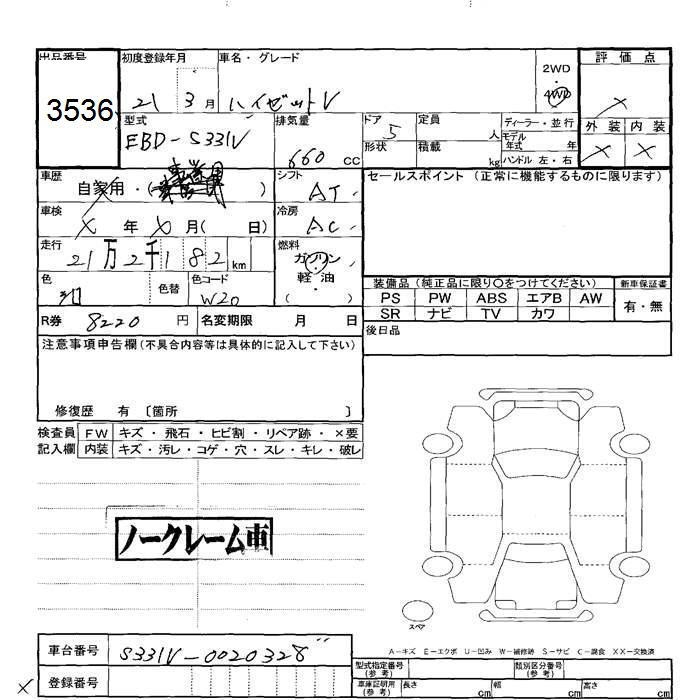 出品番号 初度登録年月 車名・グレード 2WD 評価点
3536 21 3月 ハイゼットV 4WD ×
型式 排気量 ドア 定員 ディーラー・並行 外装 内装
EBD-S331V 660 CC 5 人 モデル年式 年 × ×
形状 積載 kg ハンドル 左・右
車歴 自家用・( ) シフト AT セールスポイント (正常に機能するものに限ります)
車検 × 年 × 月( 日) 冷房 AC
走行 21万2千182 km 燃料 ガソリン・軽油 ( )
色 色替 色コード W20 装備品 (純正品に限り〇をつけてください) 新車保証書
PS PW ABS エアB AW 有・無
R券 8220 円 名変期限 月 日 SR ナビ TV カワ
注意事項申告欄(不具合内容等は具体的に記入して下さい) 後日品
修復歴 有 〔箇所 〕
検査員 FW キズ・飛石・ヒビ割・リペア跡・×要
記入欄 内装 キズ・汚レ・コゲ・穴・スレ・キレ・破レ
ノークレーム車
スペア
A-キズ E-エクボ U-凹み W-補修跡 S-サビ C-腐食 XX-交換済
車台番号 S331V-0020328
型式指定番号(参考) 類別区分番号(参考)
× 登録番号 車庫証明用(参考) 長さ cm 幅 cm 高さ cm